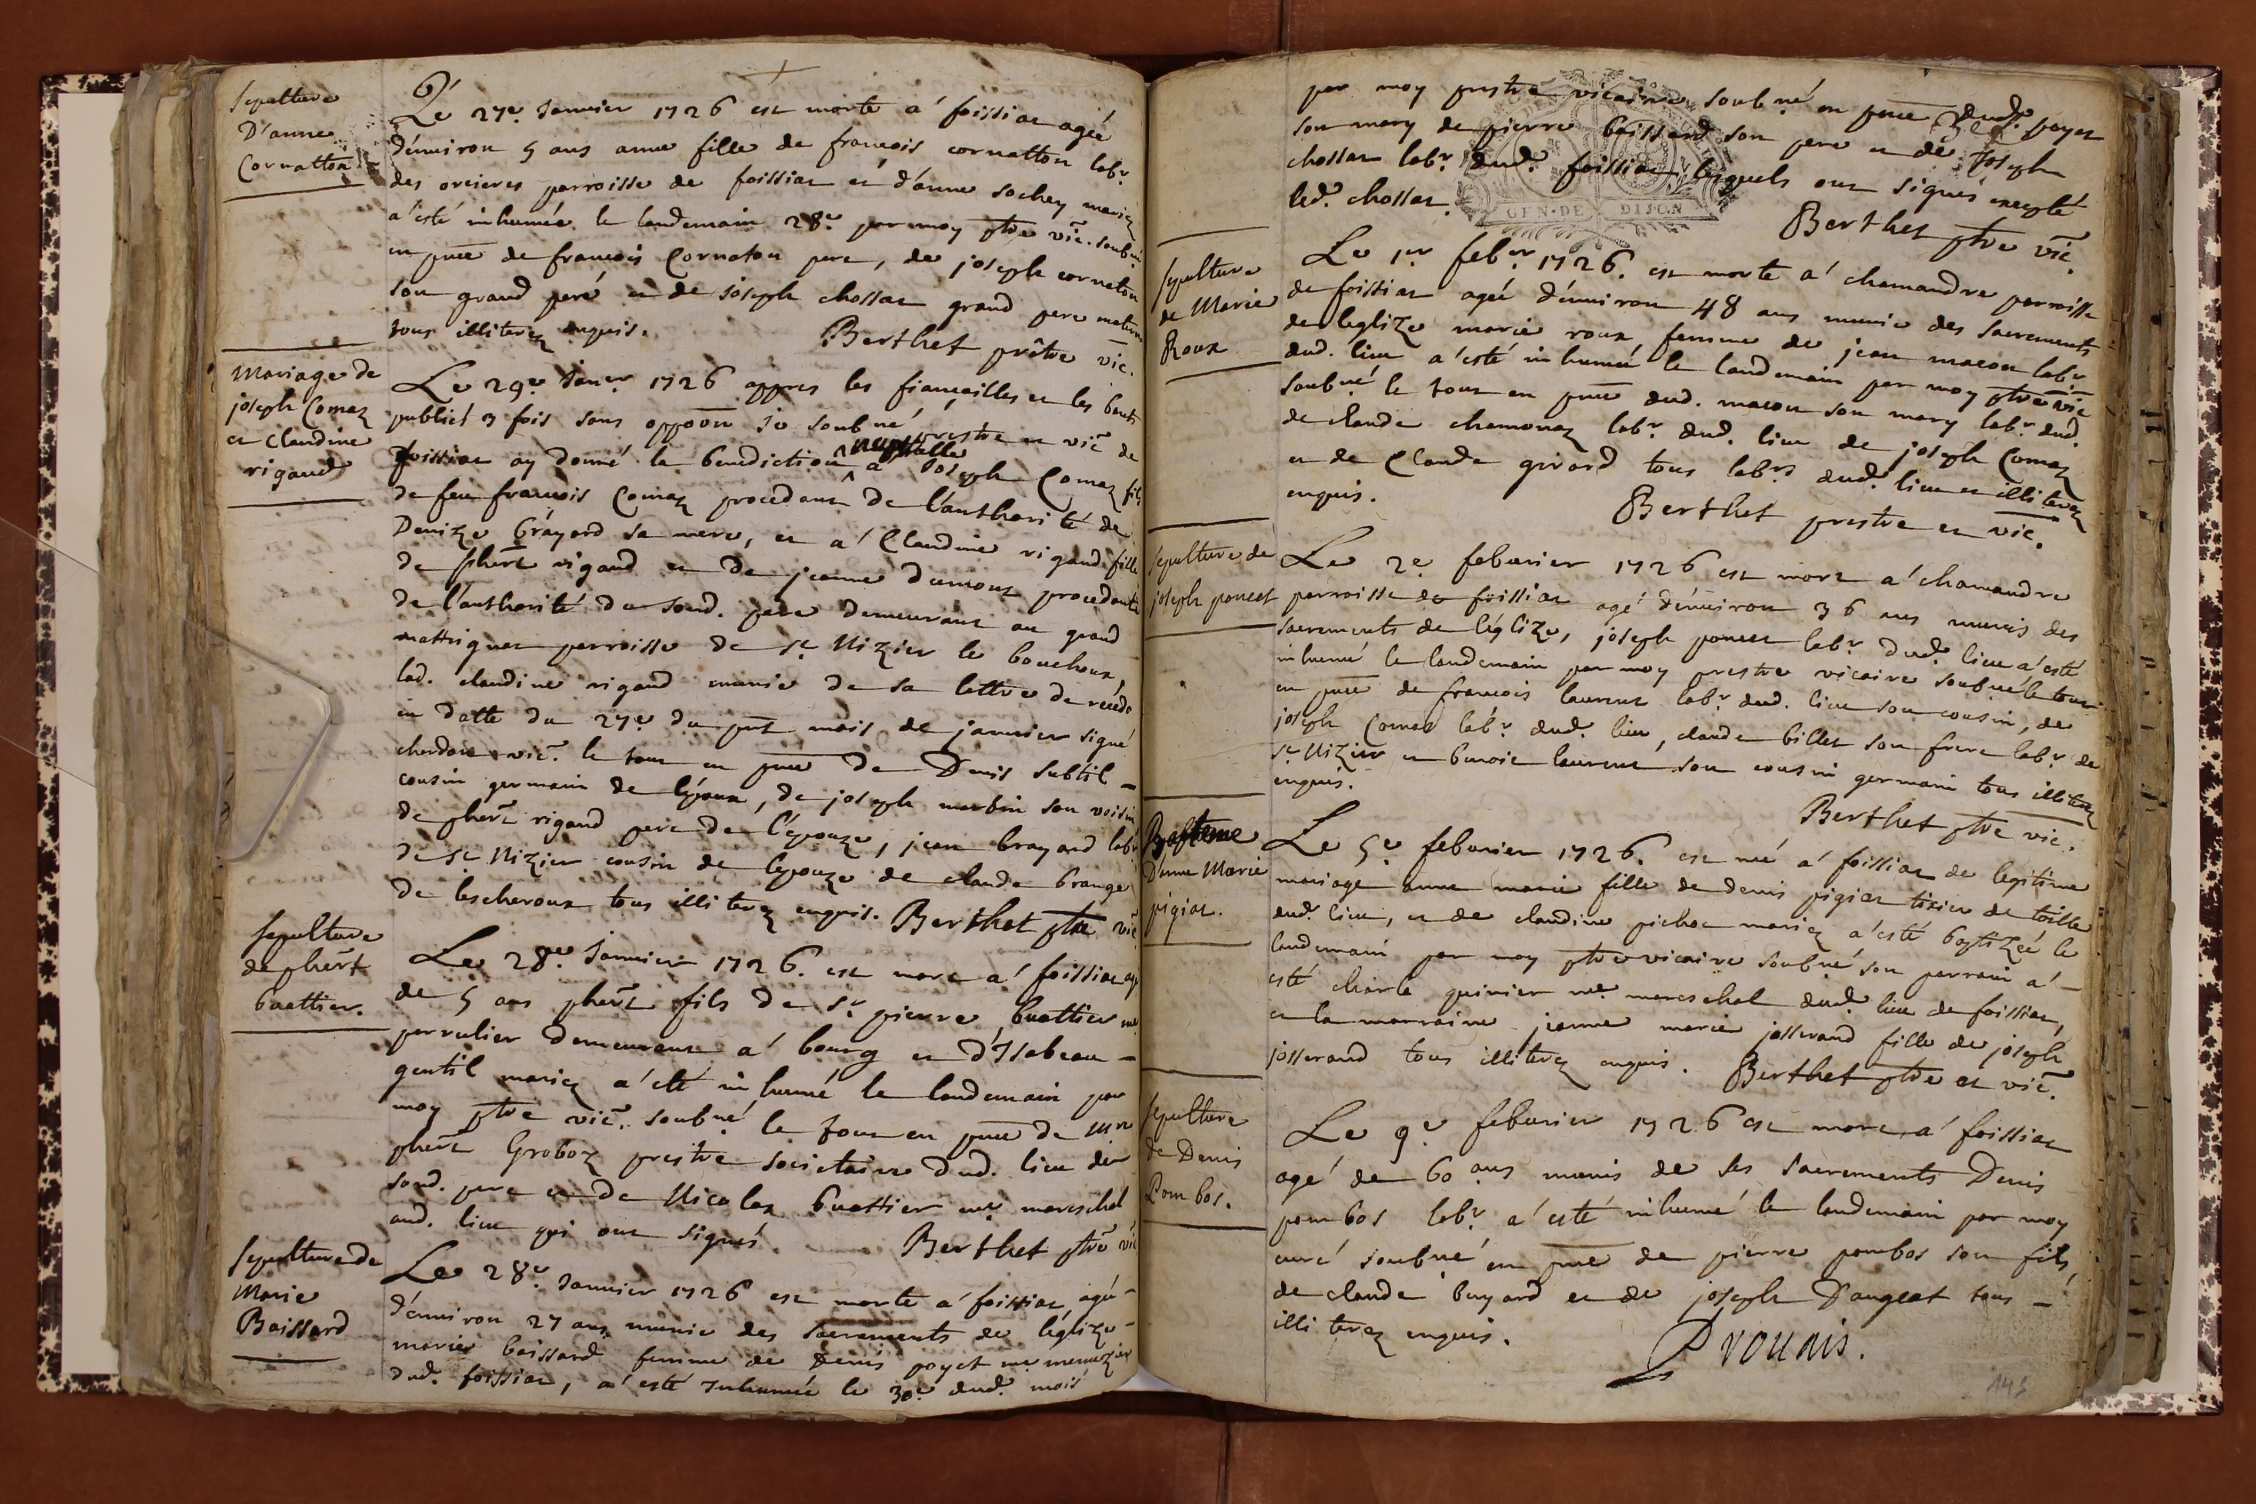 Sepulture
D'anne
Cornatton
Le 27e. Janvier 1726 est morte a' foissiat agée
d'environ 5 ans anne fille de francois cornatton labr.
des orcieres parroisse de foissiat et d'anne sochey mariez
a' esté inhumée le landemain 28e. par moy ptre vic. soubné
en pnce de francois Cornaton pere, de joseph cornaton
son grand peré et de joseph chossat grand pere maternel
tous illiterez enquis.
Berthet prêtre vic.
Mariage de
joseph Comaz
et Claudine
rigaud
Le 29e Janer 1726 appres les fiancailles et les bants
publiés 3 fois sans oppoon je soubné prestre et vic de
foissiat ay donné la benediction nuptialle a' joseph Comaz fils
de feu francois Comaz procedant de l'authorité de
Denize brayard sa mere, et a' Claudine rigaud fille
de phert rigaud et de jeanne dumont procedante
de l'authorité de sond. pere demeurant au grand
mattignat parroisse de st Nizier le bouchoux,
lad. claudine rigaud munie de sa lettre de recedo
en datte du 27e du pnt mois de janvier signé
chardon vic. le tout en pnce de Denis subtil
cousin germain de l'époux, de joseph marbin son voisin
de phert rigaud pere de l'épouze, jean brayard labr
de st Nizier cousin de l'epouze de claude brange
de lescheroux tous illiterez enquis. Berthet ptre vic
Sepulture
de phert
buattier.
Le 28e. Janvier 1726. est mort a' foissiat agé
de 5 ans phert fils de Sr. pierre buattier me
perrulier demeurant a' bourg et d'Isabeau
gentil mariez a' eté inhumé le landemain par
moy ptre vic. soubné le tout en pnce de Mre
phert Groboz prestre societaire dud. lieu de
sond. pere et de Nicolas buattier me mareschal
aud. lieu qui ont signés.
Berthet ptre vic
Sepulture de
Marie
Boissard
Le 28e. Janvier 1726 est morte a' foissiat, agée
d'environ 27 ans munie des sacrements de l'église
marie boissard femme de Denis poyet me menuzier
dud. foissiat, a' esté Inhumée le 30e dud. mois
par moy prestre vicaire soubné en pnce dud. poyet
son mary de pierre boissard son pere et de joseph
chossat labr. dud. foissiat lesquels ont signés excepté
led. chossat.
GEN. DE DIJON
Berthet ptre vic.
Sepulture
de Marie
Roux
Le 1er febvr 1726. est morte a' chamandre parroisse
de foissiat agée d'environ 48 ans munie des sacrements
de l'eglize marie roux femme de jean macon labr.
dud. lieu a'esté inhumée le landemain par moy ptre vic
soubné le tout en pnce dud. macon son mary labr. dud.
de claude chamonaz labr. dud. lieu de joseph Comaz
et de Claude girard tous labrs dud. lieu et illiterez
enquis.
Berthet prestre et vic.
Sepulture de
joseph poncet
Le 2e febvrier 1726 est mort a' chamandre
parroisse de foissiat agé d'environ 36 ans munis des
sacrements de l'églize, joseph poncet labr. dud. lieu a'esté
inhumé le landemain par moy prestre vicaire soubné le tout
en pnce de francois laurent labr. dud. lieu son cousin, de
joseph Comas labr. dud. lieu, claude billet son frere labr. de
st Nizier et benoit laurent son cousin germain tous illiterez
enquis.
Berthet ptre vic.
Bapteme
D'anne Marie
pigiat.
Le 5e febvrier 1726. est neé a' foissiat de legitime
mariage anne marie fille de denis pigiat tixier de toille
dud. lieu, et de claudine pichoc mariez a'esté baptizée le
landemain par moy ptre vicaire soubné son parrain a'
esté charle guinier me mareschal dud. lieu de foissiat,
et la marraine jeanne marie josserand fille de joseph
josserand tous illiterez enquis. Berthet ptre et vic.
Sepulture
de Denis
Pombos.
Le 9e febvrier 1726 est mort a' foissiat
agé de 60 ans munis de ses sacrements Denis
pombos labr. a' esté inhumé le landemain par moy
curé soubné en pnce de pierre pombos son fils,
de claude buyard et de joseph Dangeat tous
illiterez enquis.
Drouais.